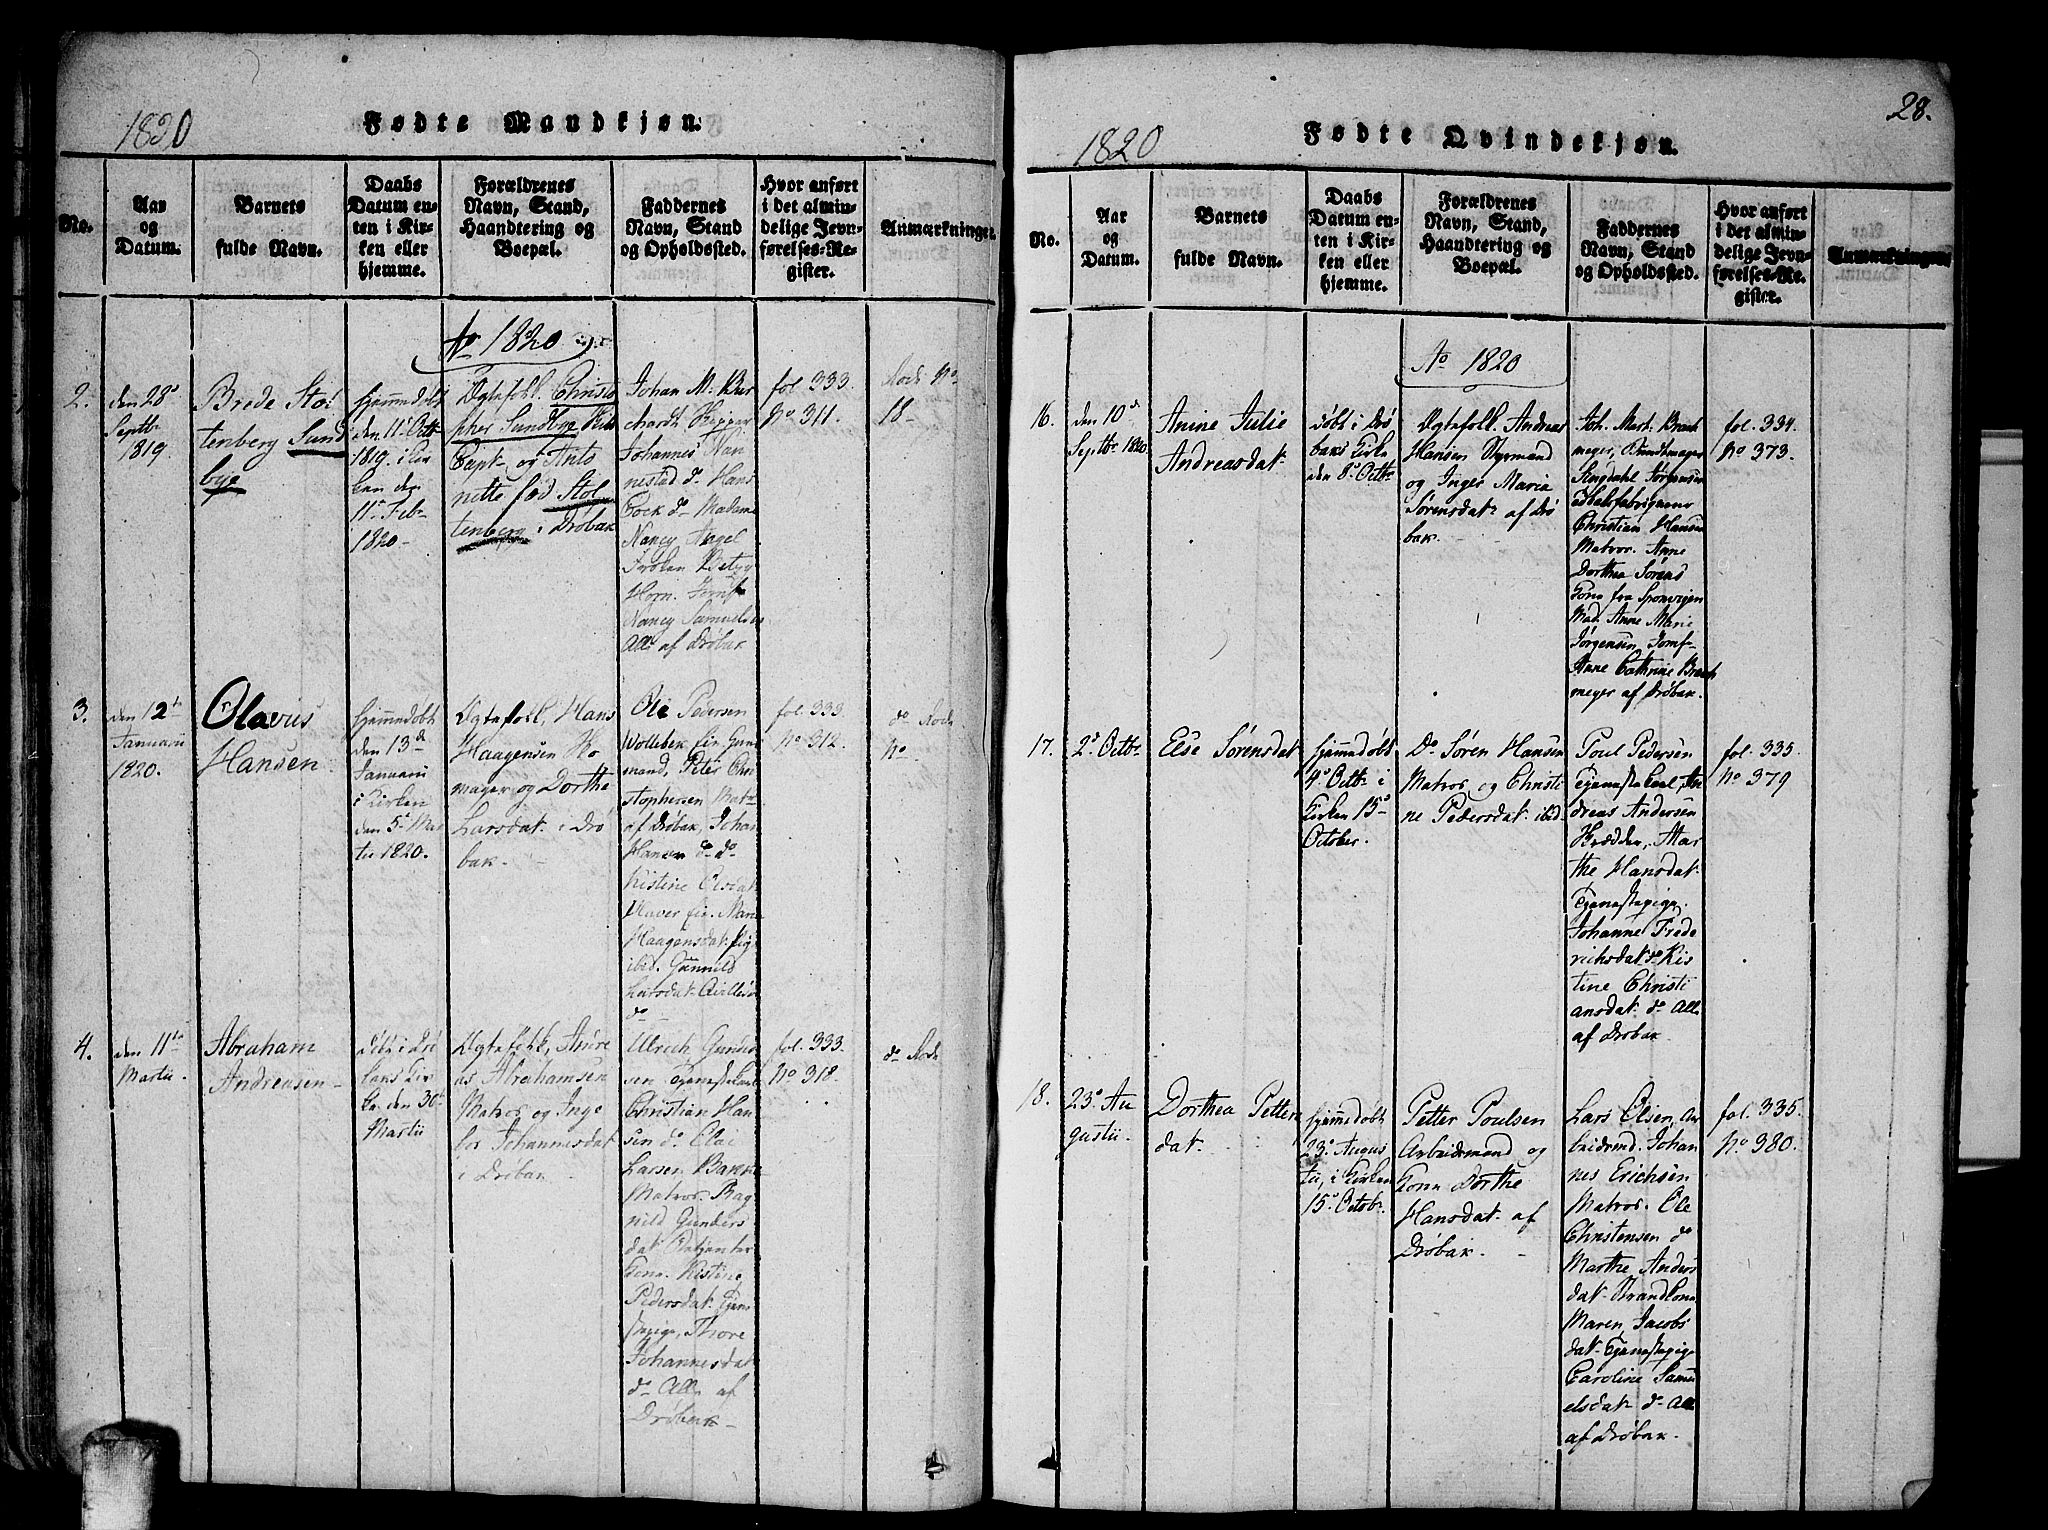 1820
Fødte Mandkjøn.
No.
Aar
og
Datum.
Barnets
fulde Navn.
Daabs
Datum en-
ten i Kir-
ken eller
hjemme.
Forældrenes
Navn, Stand,
Haandtering og
Boepæl.
Faddernes
Navn, Stand
og Opholdssted.
Hvor anført
i det almin-
delige Jevn-
førelses-Re-
gister.
Anmærkninger.
Ao 1820
2.
den 28de
Septbr
1819.
Brede Stol
tenberg Sund
bye
hjemmedøbt
den 11te Octb
1819. i Kir
ken den
11te Feb-
1820-
Ægtefolk. Christo
pher Sundbye
Capt- og Anto
nette fød Stol
tenberg i Drøbak
Johan M. Bur
chardt Skipper
Johannes Nan
nestad do Hans
Cock do Madame
Nancy Angel
Frøken Betzy
Horn. Jomf
Nancy Samuelsen
Alle af Drøbak
fol. 333.
No 311.
No
18-
3.
den 12te
Januarii
1820.
Olavus
Hansen.
hjemmedøbt
den 13de
Januarii
i Kirken
den 5te Mar
tii 1820.
Ægtefolk, Hans
Haagensen
mager og Dorthe
Larsdatr i Drø
bak.
Ole Pedersen
Wollebek
mand, Peter Chri
stophersen Matr
af Drøbak, Johan
Hansen do do
Kistine Olsdatr
Haver
Haagensdatr Pig
ibid. Gunnild
Larsdatr
do
fol. 333.
No 312.
do
No
4.
den 11te
Martii.
Abraham
Andreasen-
døbt i Drø
baks Kir
ke den 30te
Martii
Ægtefolk, Andre
as Abrahamsen
Matros og Inge
bor Johannesdatr
i Drøbak
Ulrich Gunder
sen Tjenestekarl
Christian Han
sen do Olai
Larsen Bakke
Matros. Rag
nild Gunders
datr
Kone. Kistine
Pedersdatr Tjene
stepige, Thore
Johannesdatr
do Alle af
Drøbak-
fol. 333.
No 318.
do
28.
1820
Fødte Qvindekjøn.
No.
Aar
og
Datum.
Barnets
fulde Navn.
Daabs
Datum en-
ten i Kir-
ken eller
hjemme.
Forældrenes
Navn, Stand,
Haandtering og
Boepæl.
Faddernes
Navn, Stand
og Opholdssted.
Hvor anført
i det almin-
delige Jevn-
førelses-Re-
gister.
Anmærkninger.
Ao 1820
16.
den 10de
Septbr 1820
Anine Julie
Andreasdatr
døbt i Drø
baks Kirke
den 8de Octbr
Ægtefolk. Andreas
Hansen Styrmand
og Inger Maria
Sørensdatr af Drø
bak.
Joh. Mart. Brach
meyer, Bundtmager
Jørgensen
Tobaksfabriqueur
Christian Hansen
Matros. Anne
Dorthea Sørens
Kone fra Sponvigen
Mad. Anne Marie
Jørgensen, Jomf-
Anne Cathrine Brach
meyer af Drøbak.
fol. 334.
No 373.
17.
2de Octbr
Else Sørensdatr
hjemmedøbt
4de Octbr i
Kirken 15de
October.
Do Søren Hansen
Matros og Christi
ne Pedersdatr ibid.
Poul Pedersen
Tjenestekarl, An
dreas Andersen
Brædden, Mar
the Hansdatr
Tjenestepige,
Johanne Frede
richsdatr do Kis
tine Christi
ansdatr do Alle
af Drøbak.
fol. 335.
No 379
18.
23de Au
gustii.
Dorthea Petters
datr.
hjemmedøbt
23de Augus
tii, i Kirken
15de Octobr.
Petter Poulsen
Arbeidsmand og
Kone Dorthe
Hansdatr af
Drøbak.
Lars Olsen, Ar
beidsmd. Johan
nes Erichsen
Matros. Ole
Christensen do
Marthe Anders
datr Strandkone
Maren Jacobs
datr Tjenestepige
Caroline Samu
elsdatr do Alle
af Drøbak.
fol. 335.
No 380.